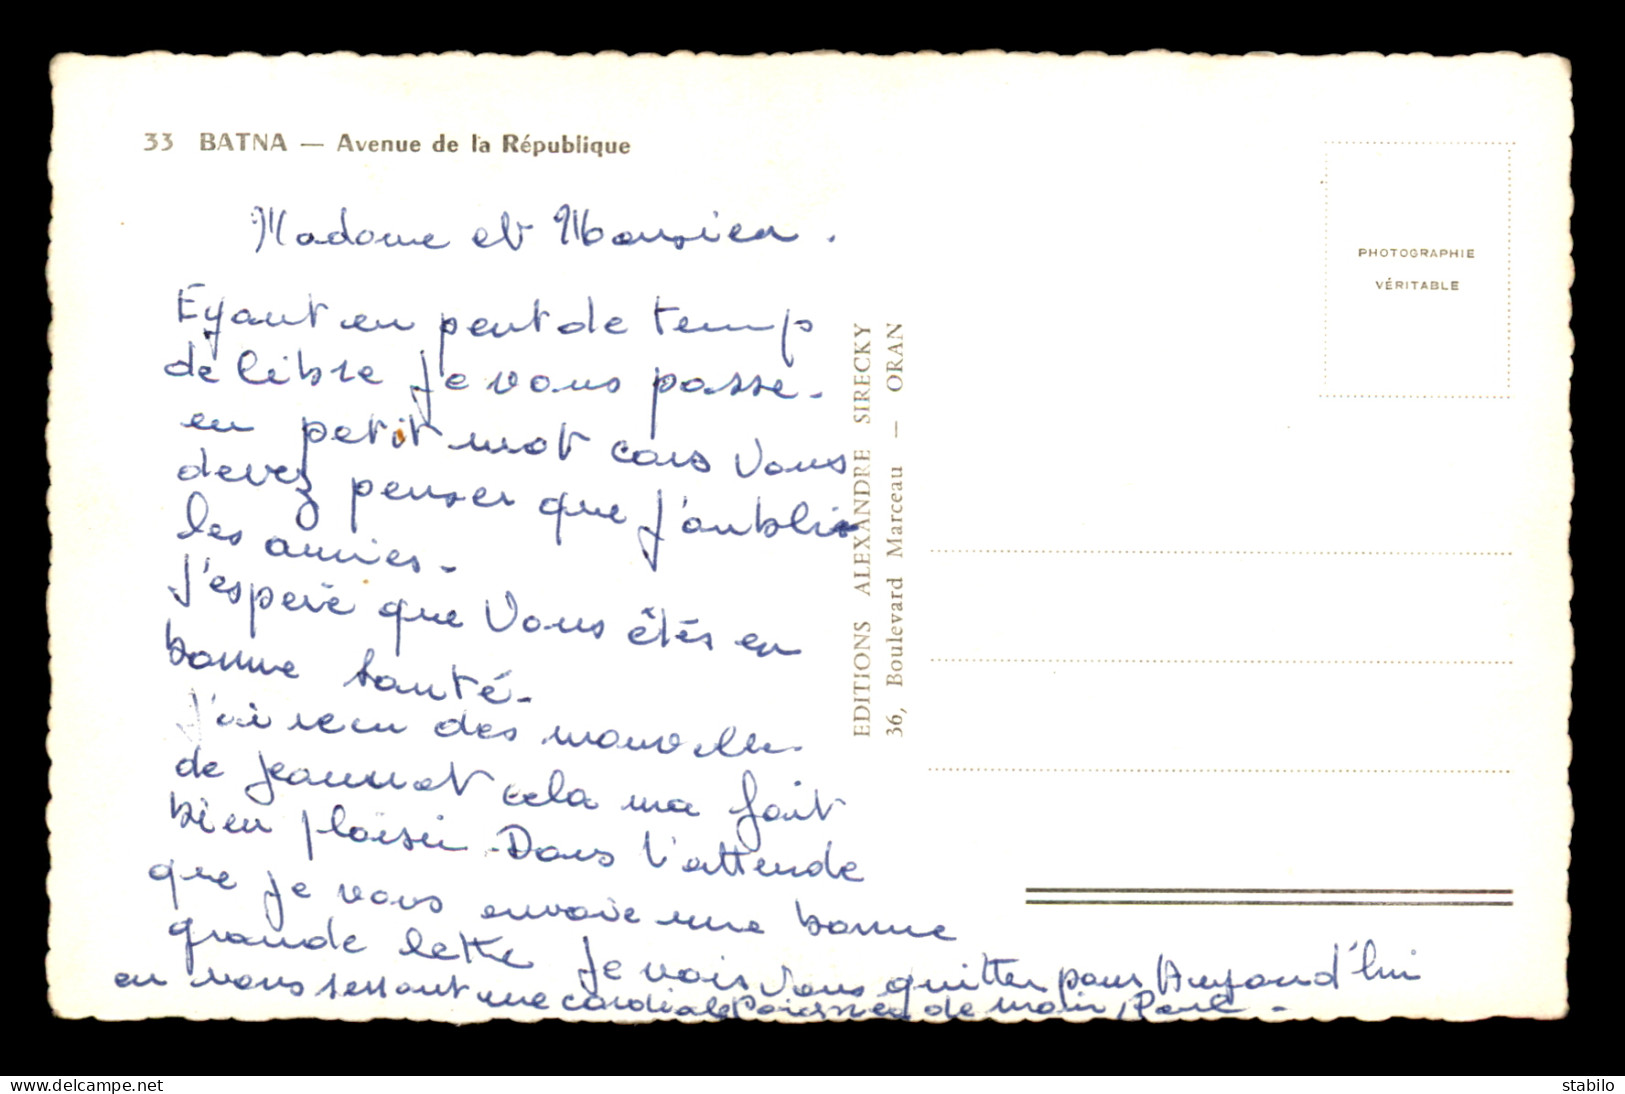 33 BATNA — Avenue de la République
Madame et Monsieu.
Eyant en peut de temp
de libre je vous passe-
en petit mot cars Vous
devez penser que j'aublis
les amies-
J'espere que Vous êtés en
bonne santé-
J'ai recu des nouvelles
de jeannot cela ma fait
bien plaisir. Dans l'attende
que je vous envoie une bonne
grande lettre je vais Vous quitter pour Auyourd'hui
en vous serrant une cordiale de main,
EDITIONS ALEXANDRE SIRECKY
36, Boulevard Marceau — ORAN
PHOTOGRAPHIE
VÉRITABLE
www.delcampe.net
stabilo